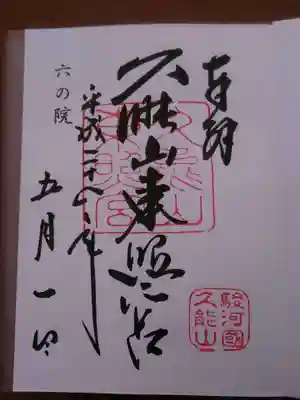 奉拝
久能山東照宮
平成二十八年
五月一日
六の院
駿河國
久能山